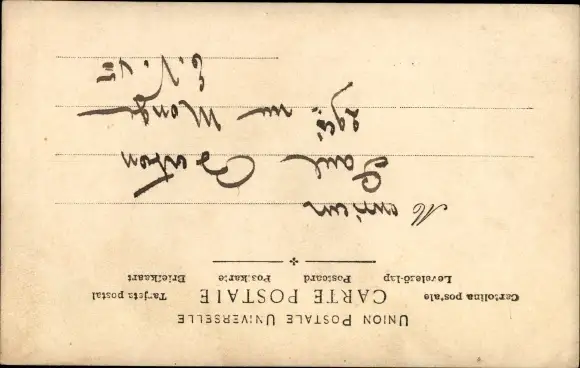 UNION POSTALE UNIVERSELLE
CARTE POSTALE
Cartolina postale Tarjeta postal
Levelező-lap Postcard Postkarte Briefkaart
Monsieur
Paul
rue Monge
E. V.